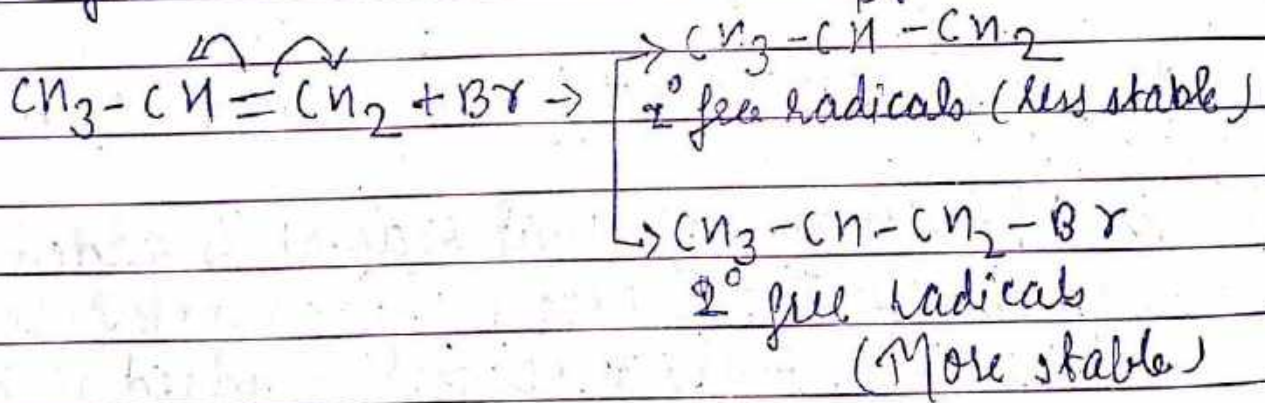 CH3-CH-CH2
CH3-CH=CH2 + Br →
2° free radicals (less stable)
CH3-CH-CH2-Br
2° free radicals
(More stable)